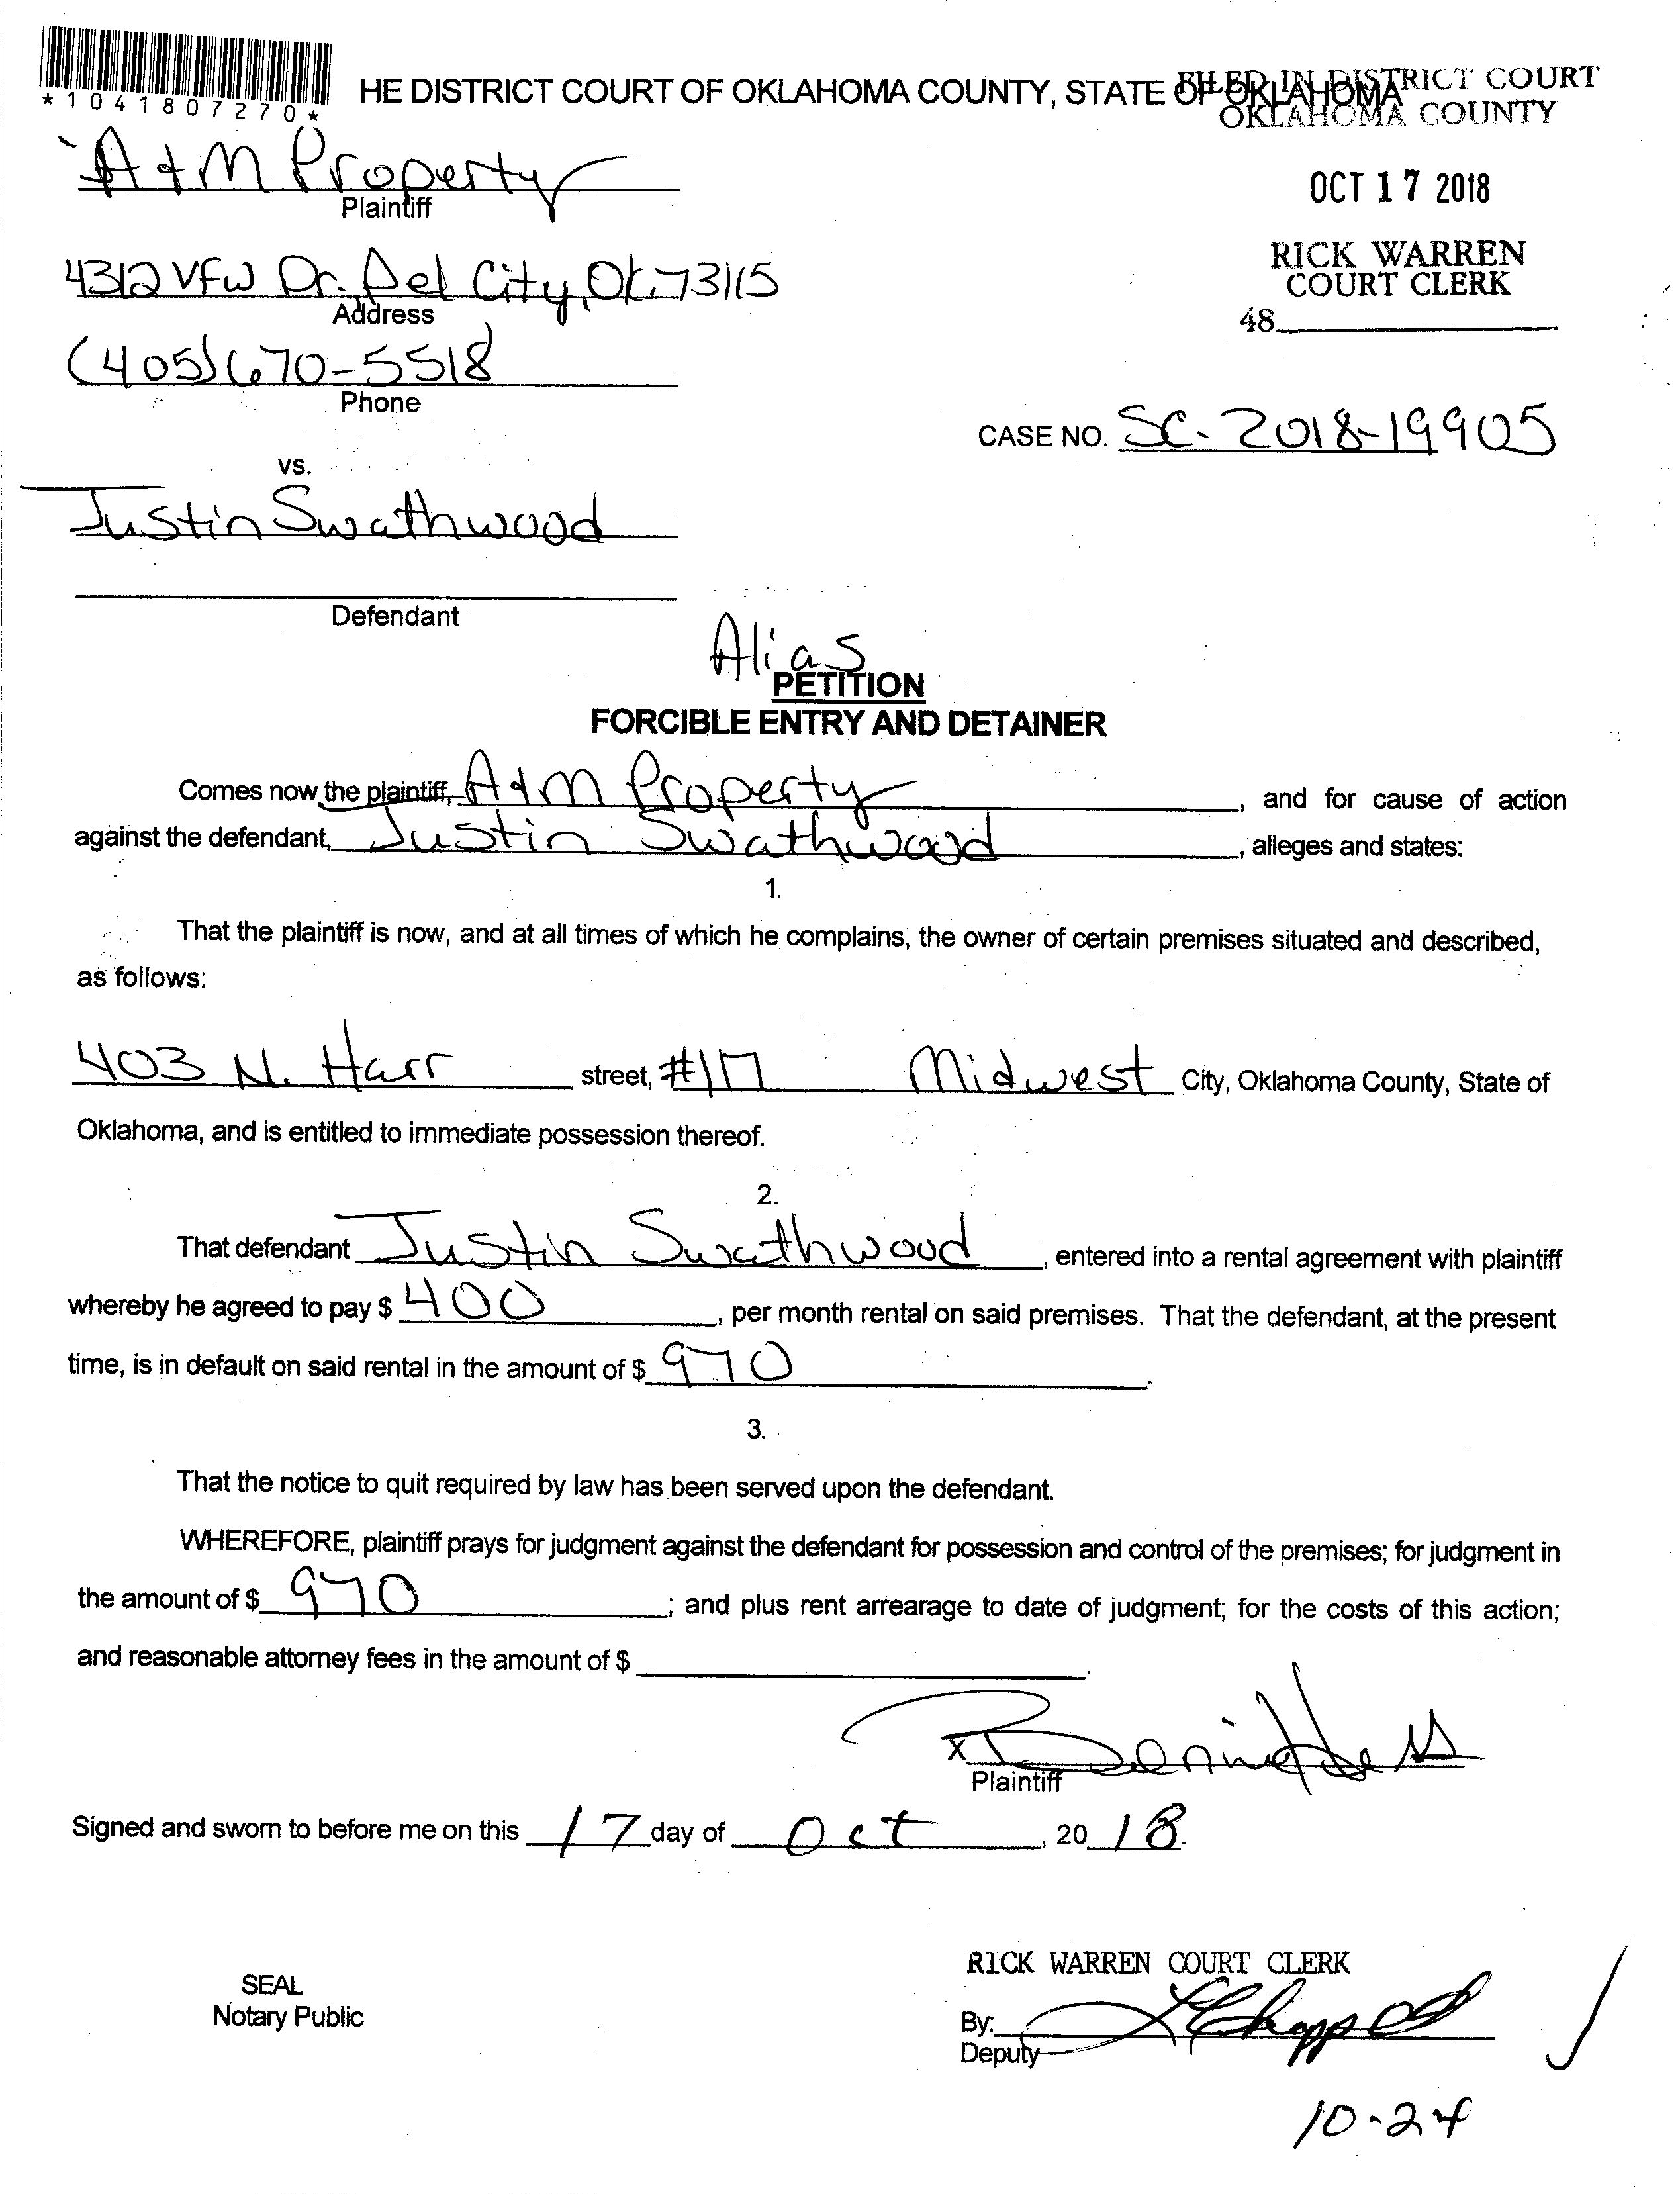 *1041807270*
HE DISTRICT COURT OF OKLAHOMA COUNTY, STATE OF OKLAHOMA
FILED IN DISTRICT COURT
OKLAHOMA COUNTY
A & M Property
Plaintiff
OCT 17 2018
4312 VFW Dr. Del City, OK 73115
Address
RICK WARREN
COURT CLERK
48
(405) 670-5518
Phone
CASE NO. SC-2018-19905
vs.
Justin Swathwood
Defendant
Alias
PETITION
FORCIBLE ENTRY AND DETAINER
Comes now the plaintiff, A & M Property, and for cause of action
against the defendant, Justin Swathwood, alleges and states:
1.
That the plaintiff is now, and at all times of which he complains, the owner of certain premises situated and described,
as follows:
403 N. Harr street, #17 Midwest City, Oklahoma County, State of
Oklahoma, and is entitled to immediate possession thereof.
2.
That defendant Justin Swathwood, entered into a rental agreement with plaintiff
whereby he agreed to pay $ 400, per month rental on said premises. That the defendant, at the present
time, is in default on said rental in the amount of $ 970.
3.
That the notice to quit required by law has been served upon the defendant.
WHEREFORE, plaintiff prays for judgment against the defendant for possession and control of the premises; for judgment in
the amount of $ 970; and plus rent arrearage to date of judgment; for the costs of this action;
and reasonable attorney fees in the amount of $.
X
Plaintiff
Signed and sworn to before me on this 17 day of Oct, 2018.
RICK WARREN COURT CLERK
SEAL
Notary Public
By:
Deputy
10-24